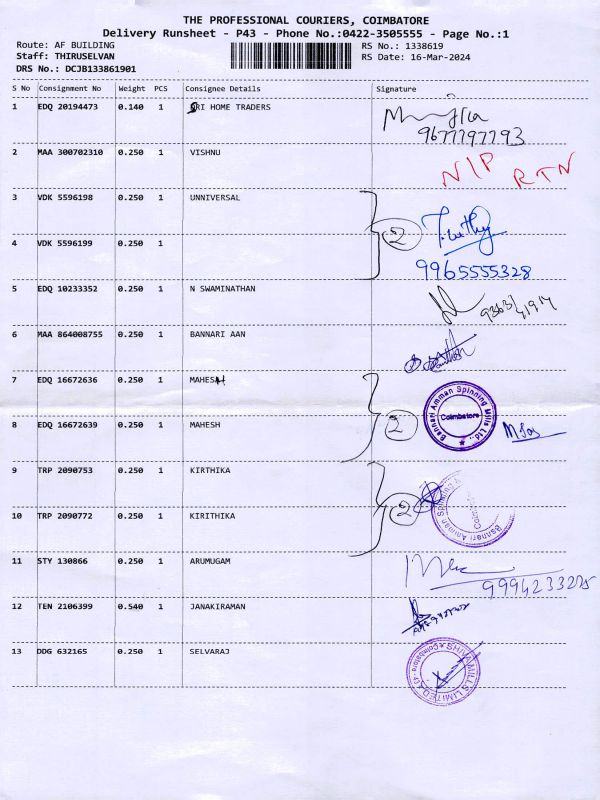 THE PROFESSIONAL COURIERS, COIMBATORE
Delivery Runsheet - P43 - Phone No.:0422-3505555 - Page No.:1
Route: AF BUILDING RS No.: 1338619
Staff: THIRUSELVAN RS Date: 16-Mar-2024
DRS No.: DCJB133861901
S No Consignment No Weight PCS Consignee Details Signature
1 EDQ 20194473 0.140 1 SRI HOME TRADERS
9677797793
2 MAA 300702310 0.250 1 VISHNU N/P RTN
3 VDK 5596198 0.250 1 UNNIVERSAL
2
4 VDK 5596199 0.250 1
9965555328
5 EDQ 10233352 0.250 1 N SWAMINATHAN
6 MAA 864008755 0.250 1 BANNARI AAN
7 EDQ 16672636 0.250 1 MAHESH
Bannari Amman Spinning Mills Ltd.,
Coimbatore
2
8 EDQ 16672639 0.250 1 MAHESH
9 TRP 2090753 0.250 1 KIRTHIKA
2
Bannari Amman Spinning
10 TRP 2090772 0.250 1 KIRITHIKA
11 STY 130866 0.250 1 ARUMUGAM
9994233225
12 TEN 2106399 0.540 1 JANAKIRAMAN
13 DDG 632165 0.250 1 SELVARAJ
SHIVA MILLS LIMITED
Coimbatore